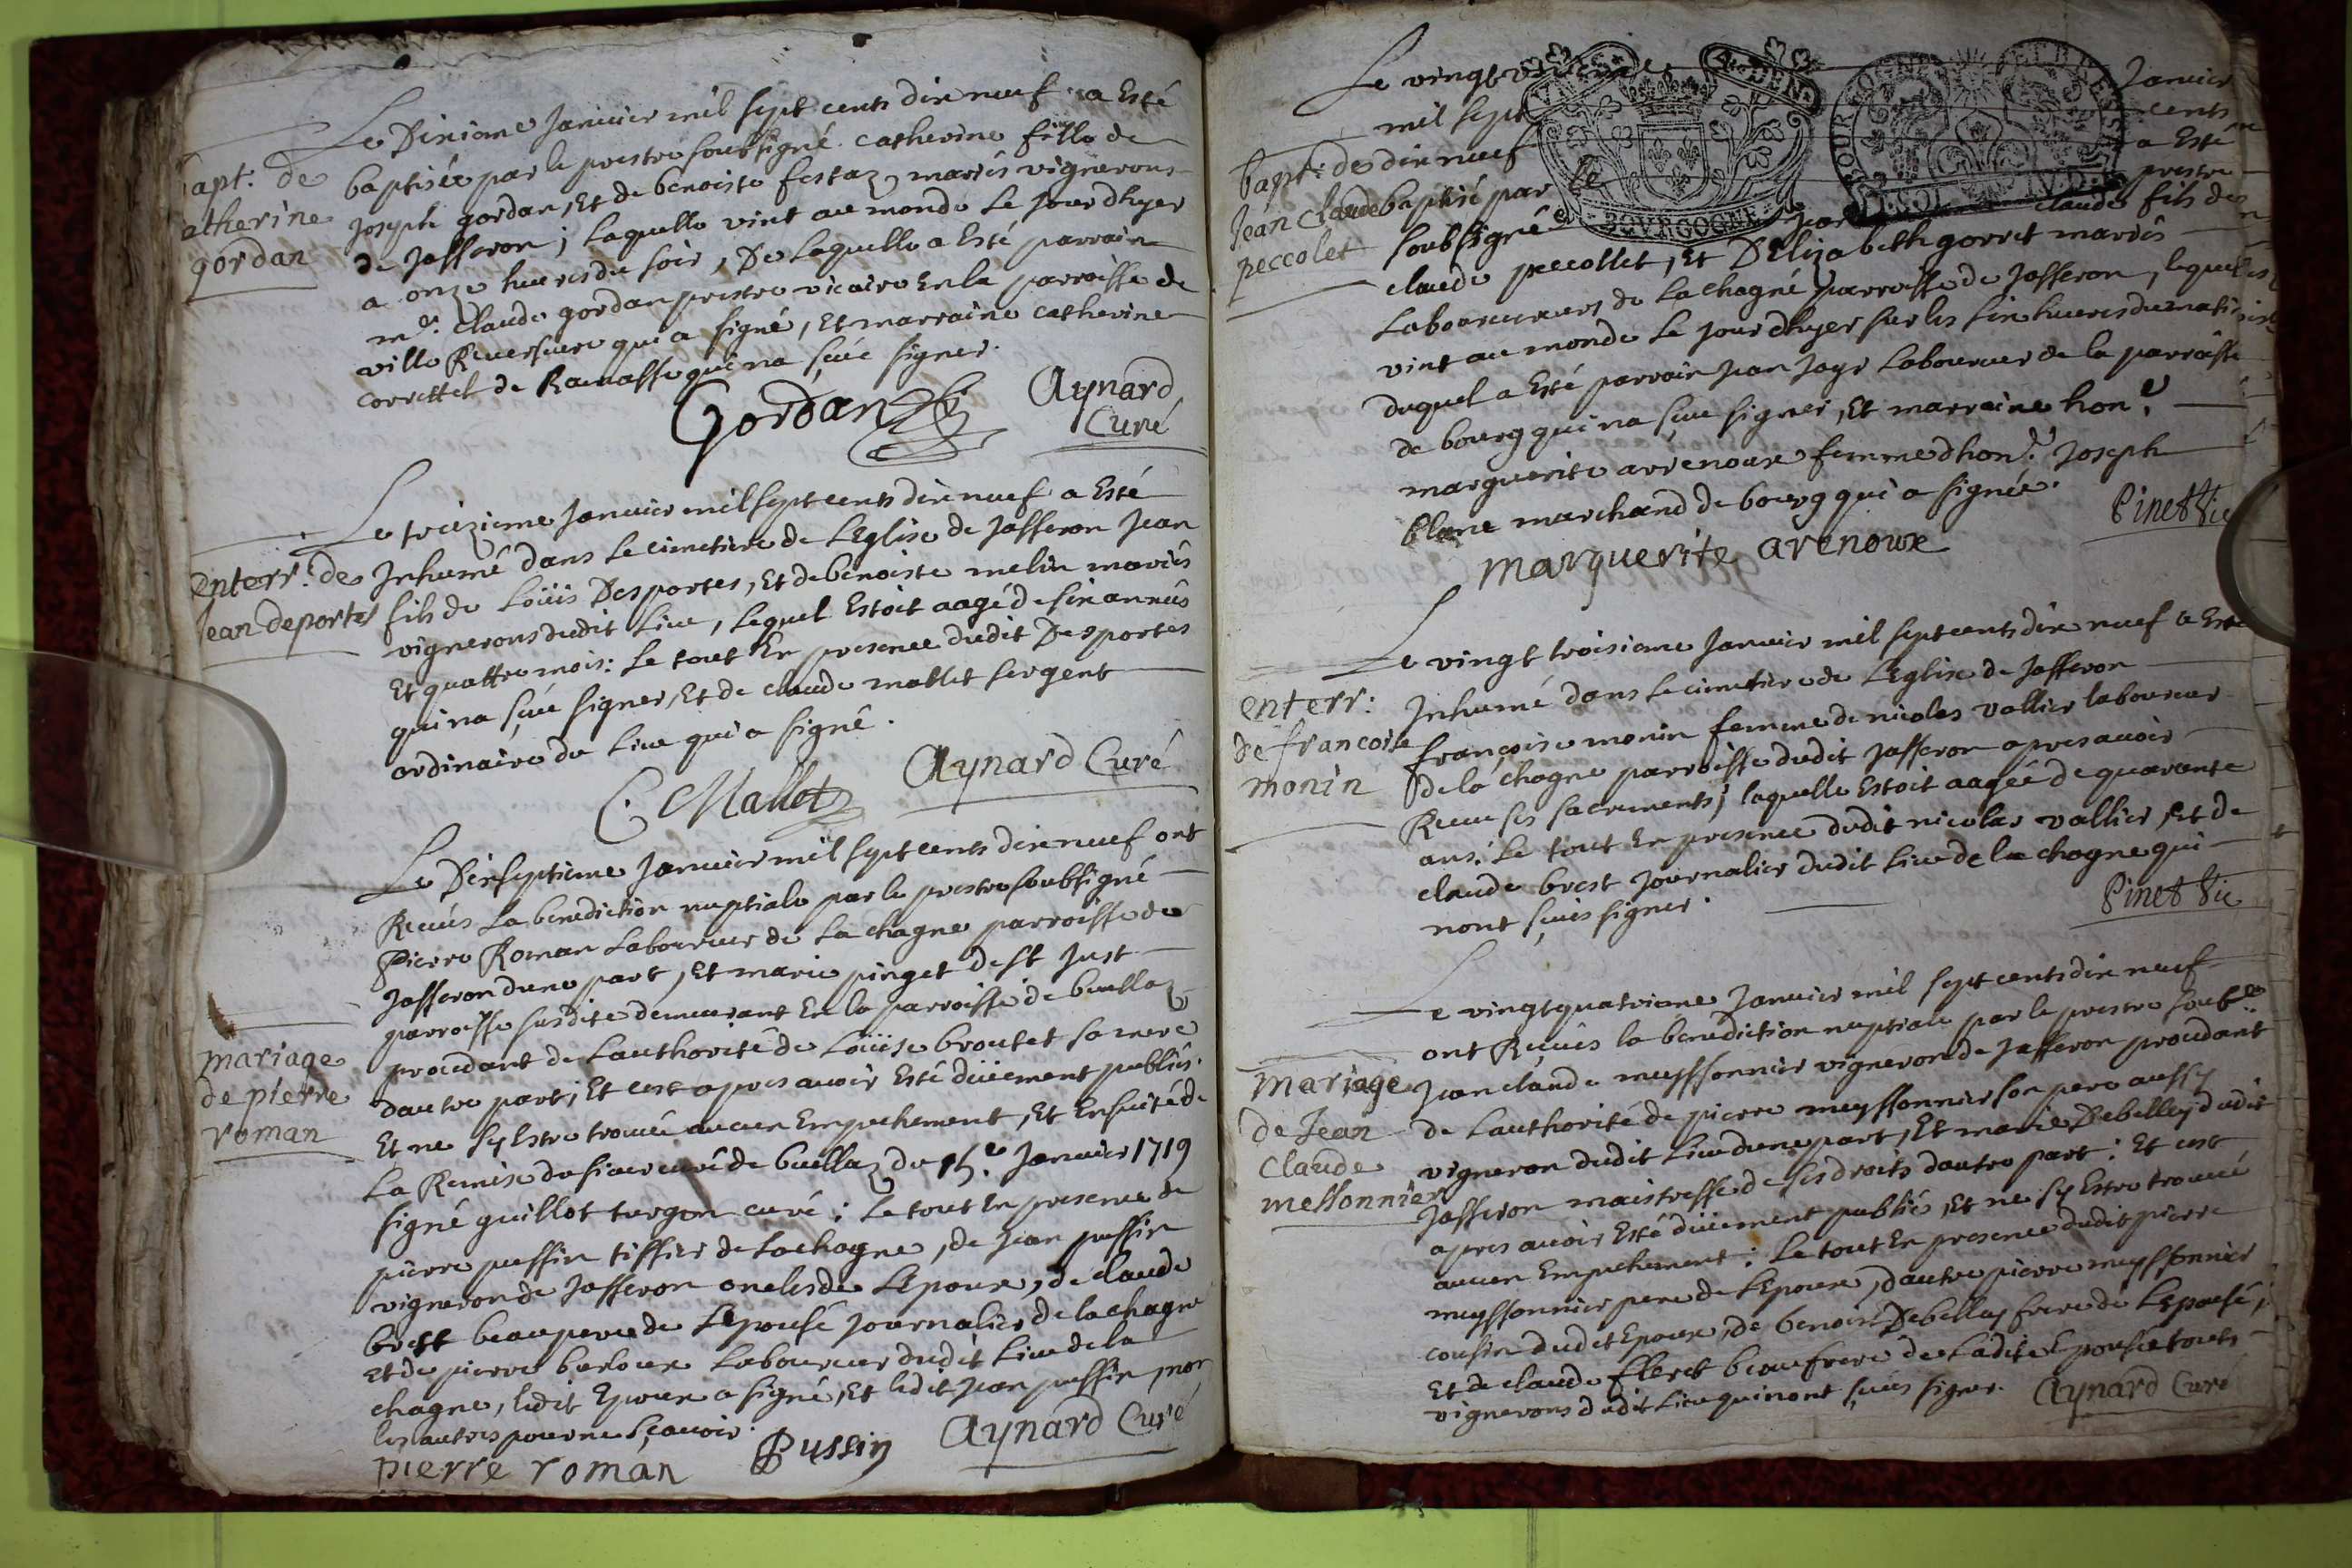 Le Dixieme Janvier mil sept cents dix neuf a Esté
bapt. de
catherine
gordan
baptisée par le prestre soubsigné catherine fille de
joseph gordan, Et de benoiste festaz mariés vignerons
de Jasseron; laquelle vint au monde Le jour dhyer
a onze heures du soir, De laquelle a Esté parrain
mre. Claude gordan prestre vicaire En la parroisse de
ville Reversure qui a signé, Et marraine catherine
correttel de Ramasse qui na sçué signer.
Gordan
Aynard
Curé
Le treizieme Janvier mil sept cents dix neuf a Esté
enterr. de
Jean deportes
Inhumé dans Le cimetiere de LEglise de Jasseron Jean
fils de Loüis Desportes, Et de benoiste melin mariés
vignerons dudit Lieu, Lequel Estoit aagé de six années
Et quattre mois: Le tout En presence dudit Desportes
qui na sçué signer, Et de claude mallet sergent
ordinaire du Lieu qui a signé.
C. Mallet
Aynard Curé
Le Dixseptieme Janvier mil sept cents dix neuf ont
mariage
de pierre
roman
Reçeus La benediction nuptiale par le prestre soubsigné
Pierre Roman Laboureur de La chagne parroisse de
Jasseron dune part, Et marie pinget de st Just
parroisse susdite demeurant En la parroisse de buellaz
procedant de Lauthorité de Loüise broutet sa mere
dautre part; Et cest apres avoir Esté düement publiés.
Et ne sy Estre trouvé aucun Empechement, Et Ensuite de
La Remise du sieur curé de buellaz du 15.e Janvier 1719
signé guillot turgon curé; Le tout En presence de
pierre pussin tissier de Lachagne, de jean pussin
vigneron de Jasseron oncles de Lepoux, de claude
brest beaupere de Lepousé journalier de lachagne
et de pierre berloux Laboureur dudit Lieu de la
chagne, Ledit Epoux a signé, Et ledit jean pussin, non
les autres pour ne sçavoir.
pierre roman
Pussin
Aynard Curé
Le vingt Janvier
mil sept cents
bapt: de
Jean Claude
peccolet
dix neuf a Esté
baptisé par Le prestre
soubsigné Jean claude fils de
claude peccollet, Et DElizabeth gorret mariés
Laboureurs de La chagne parroisse de Jasseron, lequel
vint au monde Le jour dhyer sur les six heures du matin
duquel a Esté parrain jean jays Laboureur de la parroisse
de bourg qui na sçue signer, Et marraine hon.e
marguerite arrenoux femme dhon.e Joseph
blanc marchand de bourg qui a signée.
BOURGOGNE
marguerite arenoux
Pinet Vic
Le vingt troisieme Janvier mil sept cents dix neuf a Esté
enterr:
de francoise
monin
Inhumé dans Le cimetiere de LEglise de Jasseron
françoise monin femme de nicolas vallier laboureur
de la chagne parroisse dudit Jasseron apres avoir
Receu ses sacrements; laquelle Estoit aagée de quarante
ans; Le tout En presence dudit nicolas vallier, Et de
claude brest journalier dudit Lieu de la chagne qui
nont sçues signer.
Pinet Vic
Le vingt quatrieme Janvier mil sept cents dix neuf
mariage
de Jean
Claude
messonnier
ont Reçeus la benediction nuptiale par le prestre soubs.é
jean claude meyssonnier vigneron de Jasseron procedant
de Lauthorité de pierre meyssonnier son pere aussy
vigneron dudit Lieu dune part, Et marie Debelley dudit
Jasseron maistresse de ses droits dautre part: Et cest
apres avoir Esté düement publiés, Et ne sy Estre trouvé
aucun Empechement: Le tout En presence dudit pierre
meyssonnier pere de Lepoux, dautre pierre meyssonnier
cousin dudit Epoux, de benoist Debelley frere de Lepousé,
Et de claude fleret beaufrere de Ladite Epousée touts
vignerons dudit Lieu qui nont sçues signer.
Aynard Curé